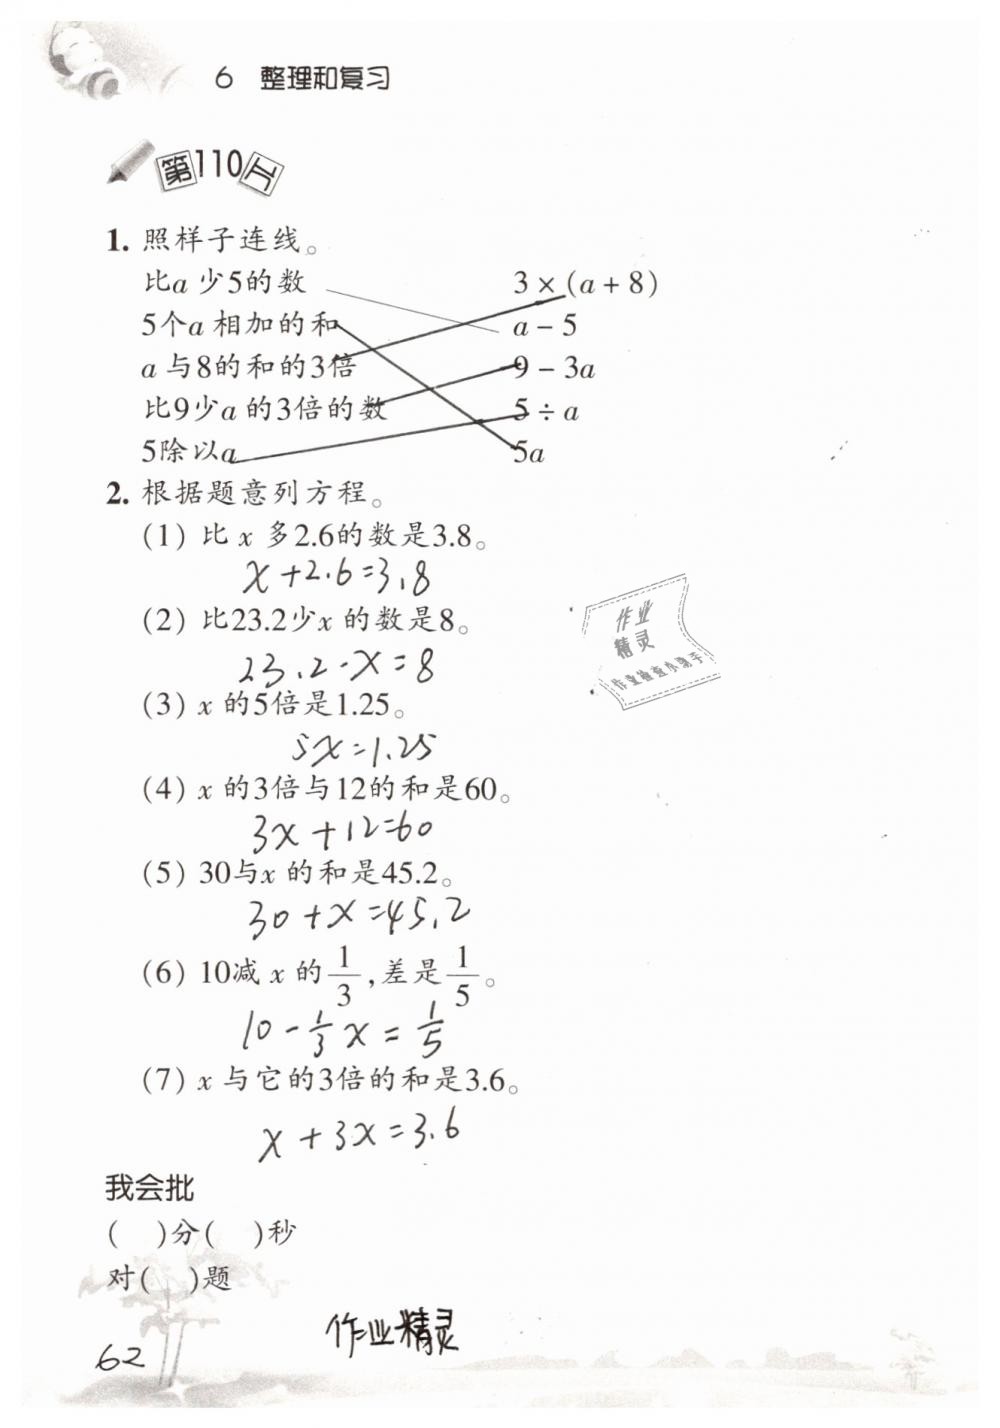 6 整理和复习
第110天
1. 照样子连线。
比a 少5的数 3×(a+8)
5个a 相加的和 a-5
a 与8的和的3倍 9-3a
比9少a 的3倍的数 5÷a
5除以a 5a
2. 根据题意列方程。
(1) 比 x 多2.6的数是3.8。
x+2.6=3.8
(2) 比23.2少x 的数是8。
23.2-x=8
(3) x 的5倍是1.25。
5x=1.25
(4) x 的3倍与12的和是60。
3x+12=60
(5) 30与x 的和是45.2。
30+x=45.2
(6) 10减 x 的1/3,差是1/5。
10-1/3x=1/5
(7) x 与它的3倍的和是3.6。
x+3x=3.6
作业
精灵
作业检查小助手
我会批
( )分( )秒
对( )题
作业精灵
62